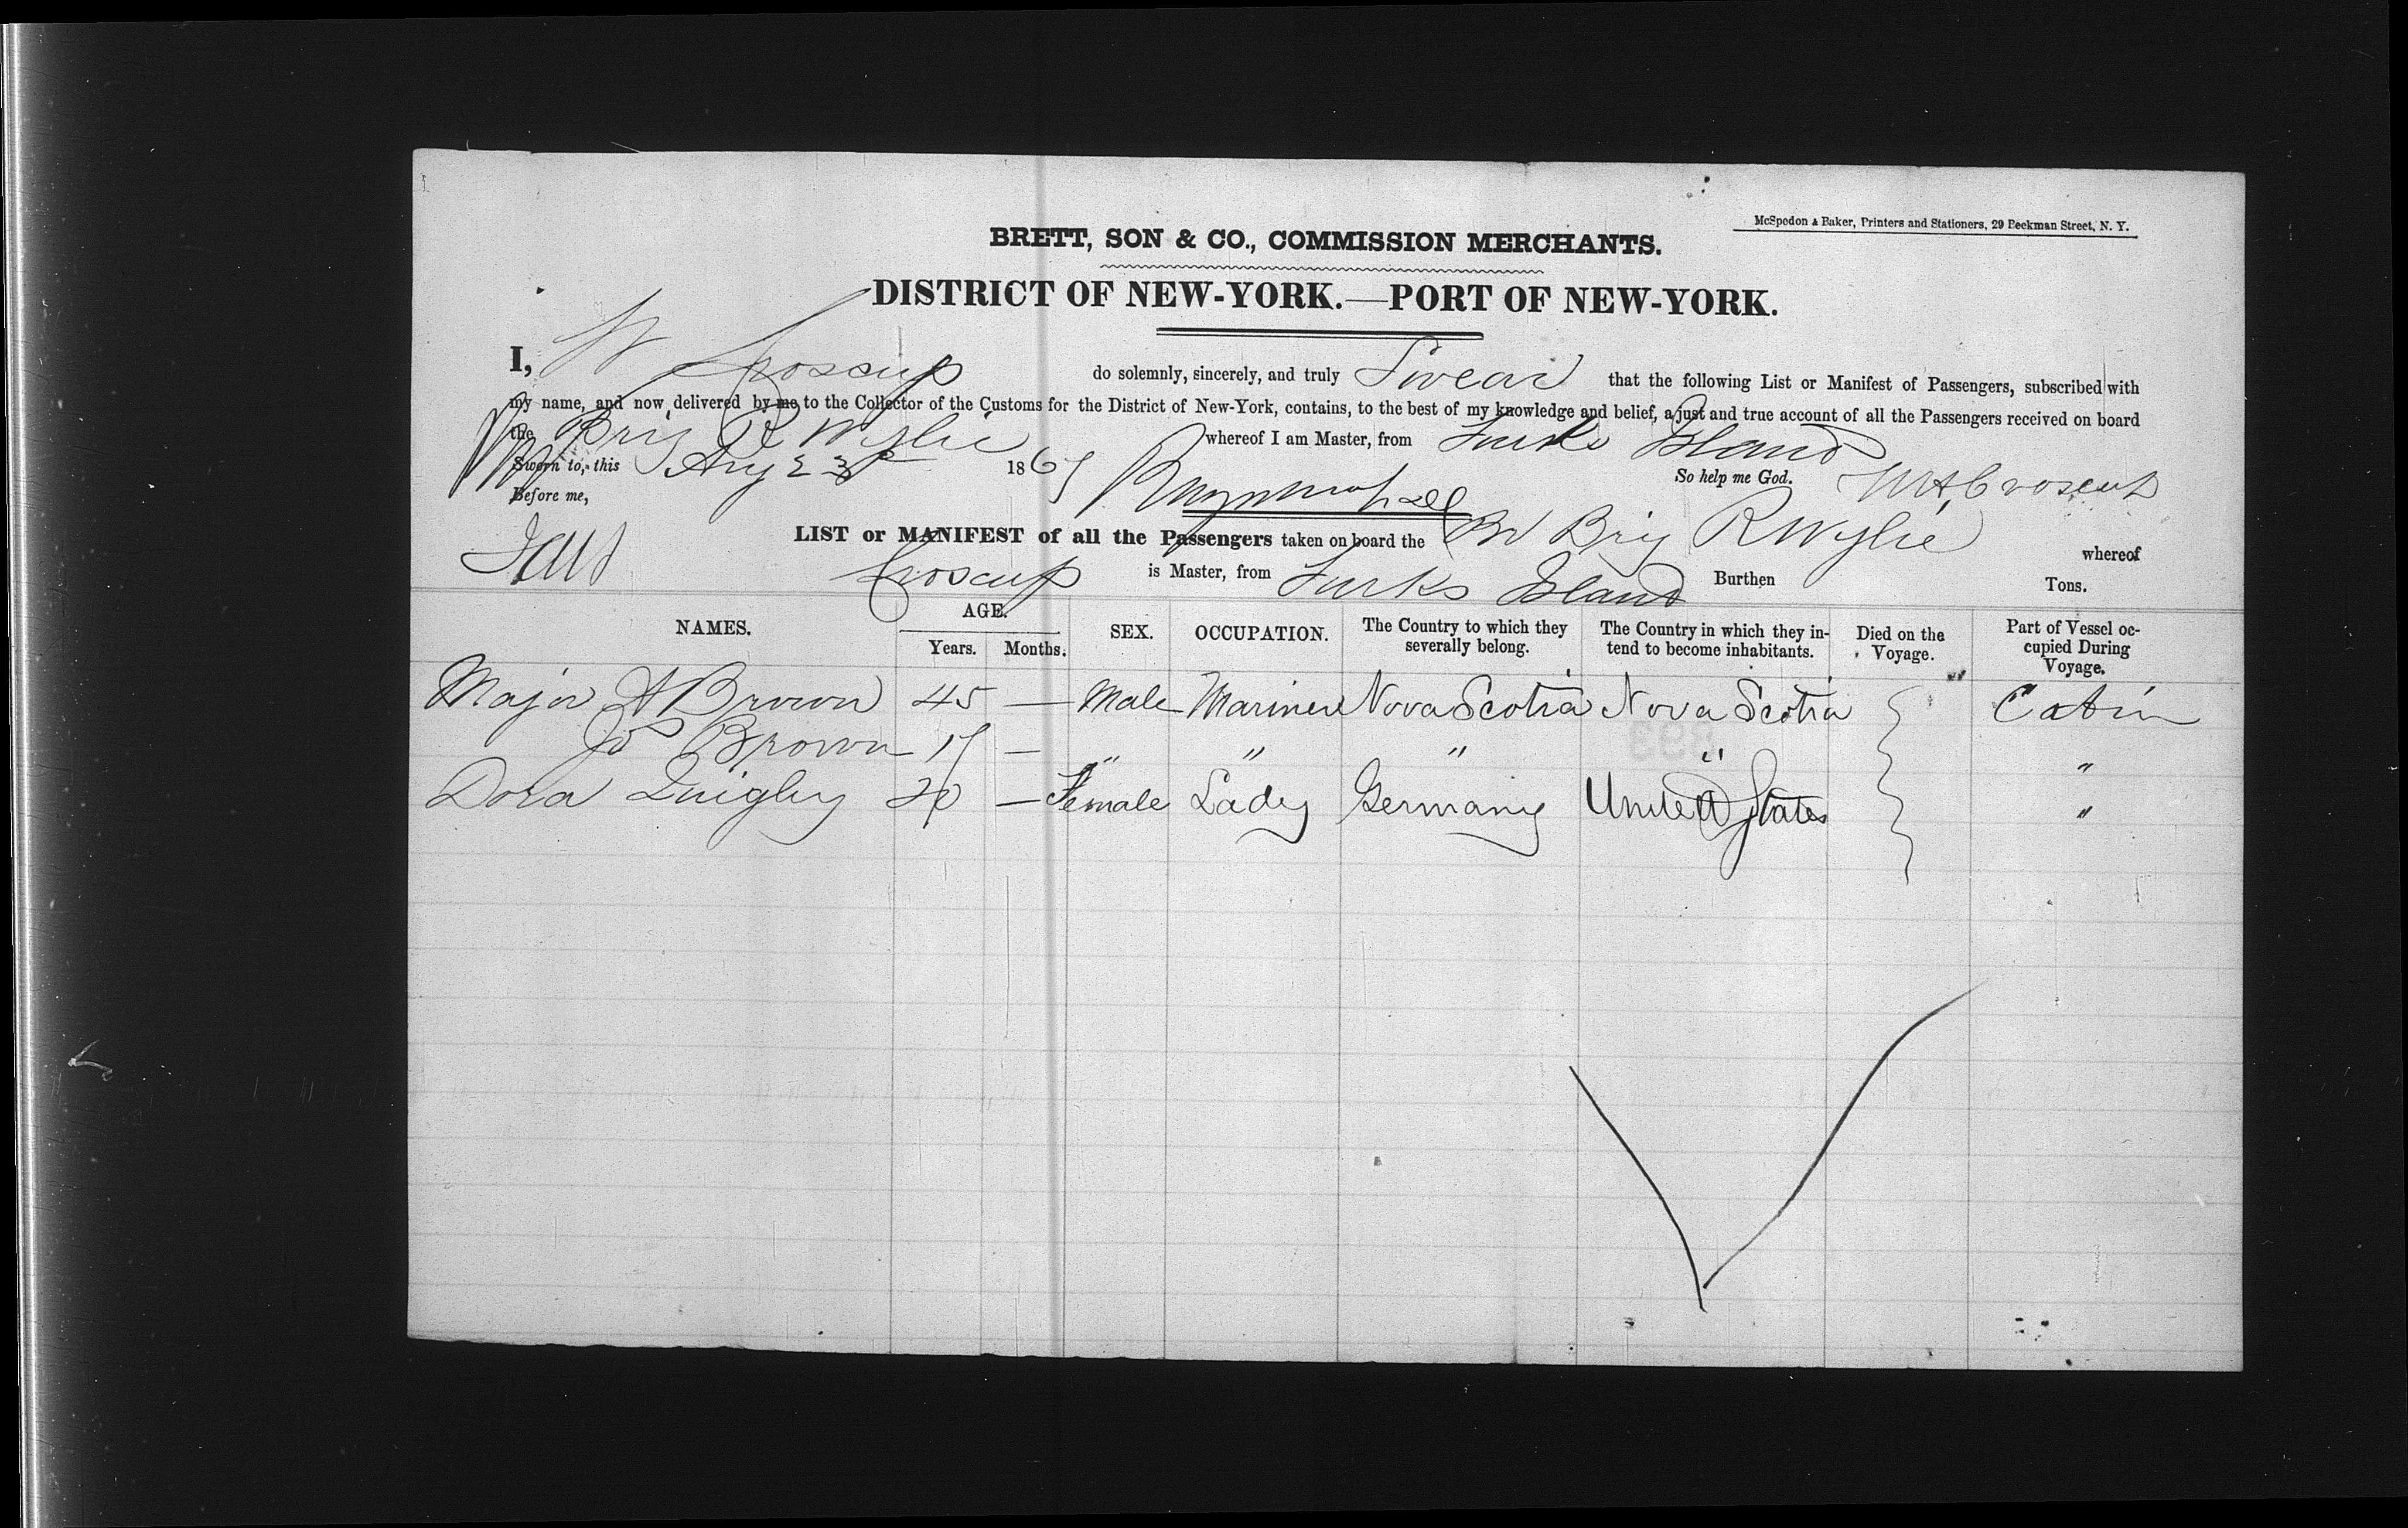 McSpedon & Baker, Printers and Stationers, 29 Beekman Street, N. Y.
BRETT, SON & CO., COMMISSION MERCHANTS.
DISTRICT OF NEW-YORK.—PORT OF NEW-YORK.
I, W Croscup do solemnly, sincerely, and truly Swear that the following List or Manifest of Passengers, subscribed with
my name, and now delivered by me to the Collector of the Customs for the District of New-York, contains, to the best of my knowledge and belief, a just and true account of all the Passengers received on board
the Brig R Wylie whereof I am Master, from Turks Island
Sworn to, this Aug 23 1867 So help me God. Croscup
Before me,
LIST or MANIFEST of all the Passengers taken on board the Br Brig R Wylie whereof
Croscup is Master, from Turks Island Burthen Tons.
NAMES. AGE. Years. Months. SEX. OCCUPATION. The Country to which they severally belong. The Country in which they intend to become inhabitants. Died on the Voyage. Part of Vessel occupied During Voyage.
Major A Brown 45 — Male Mariner Nova Scotia Nova Scotia Cabin
Jo Brown 17 — " " " " "
Dora Quigley 20 — Female Lady Germany United States "